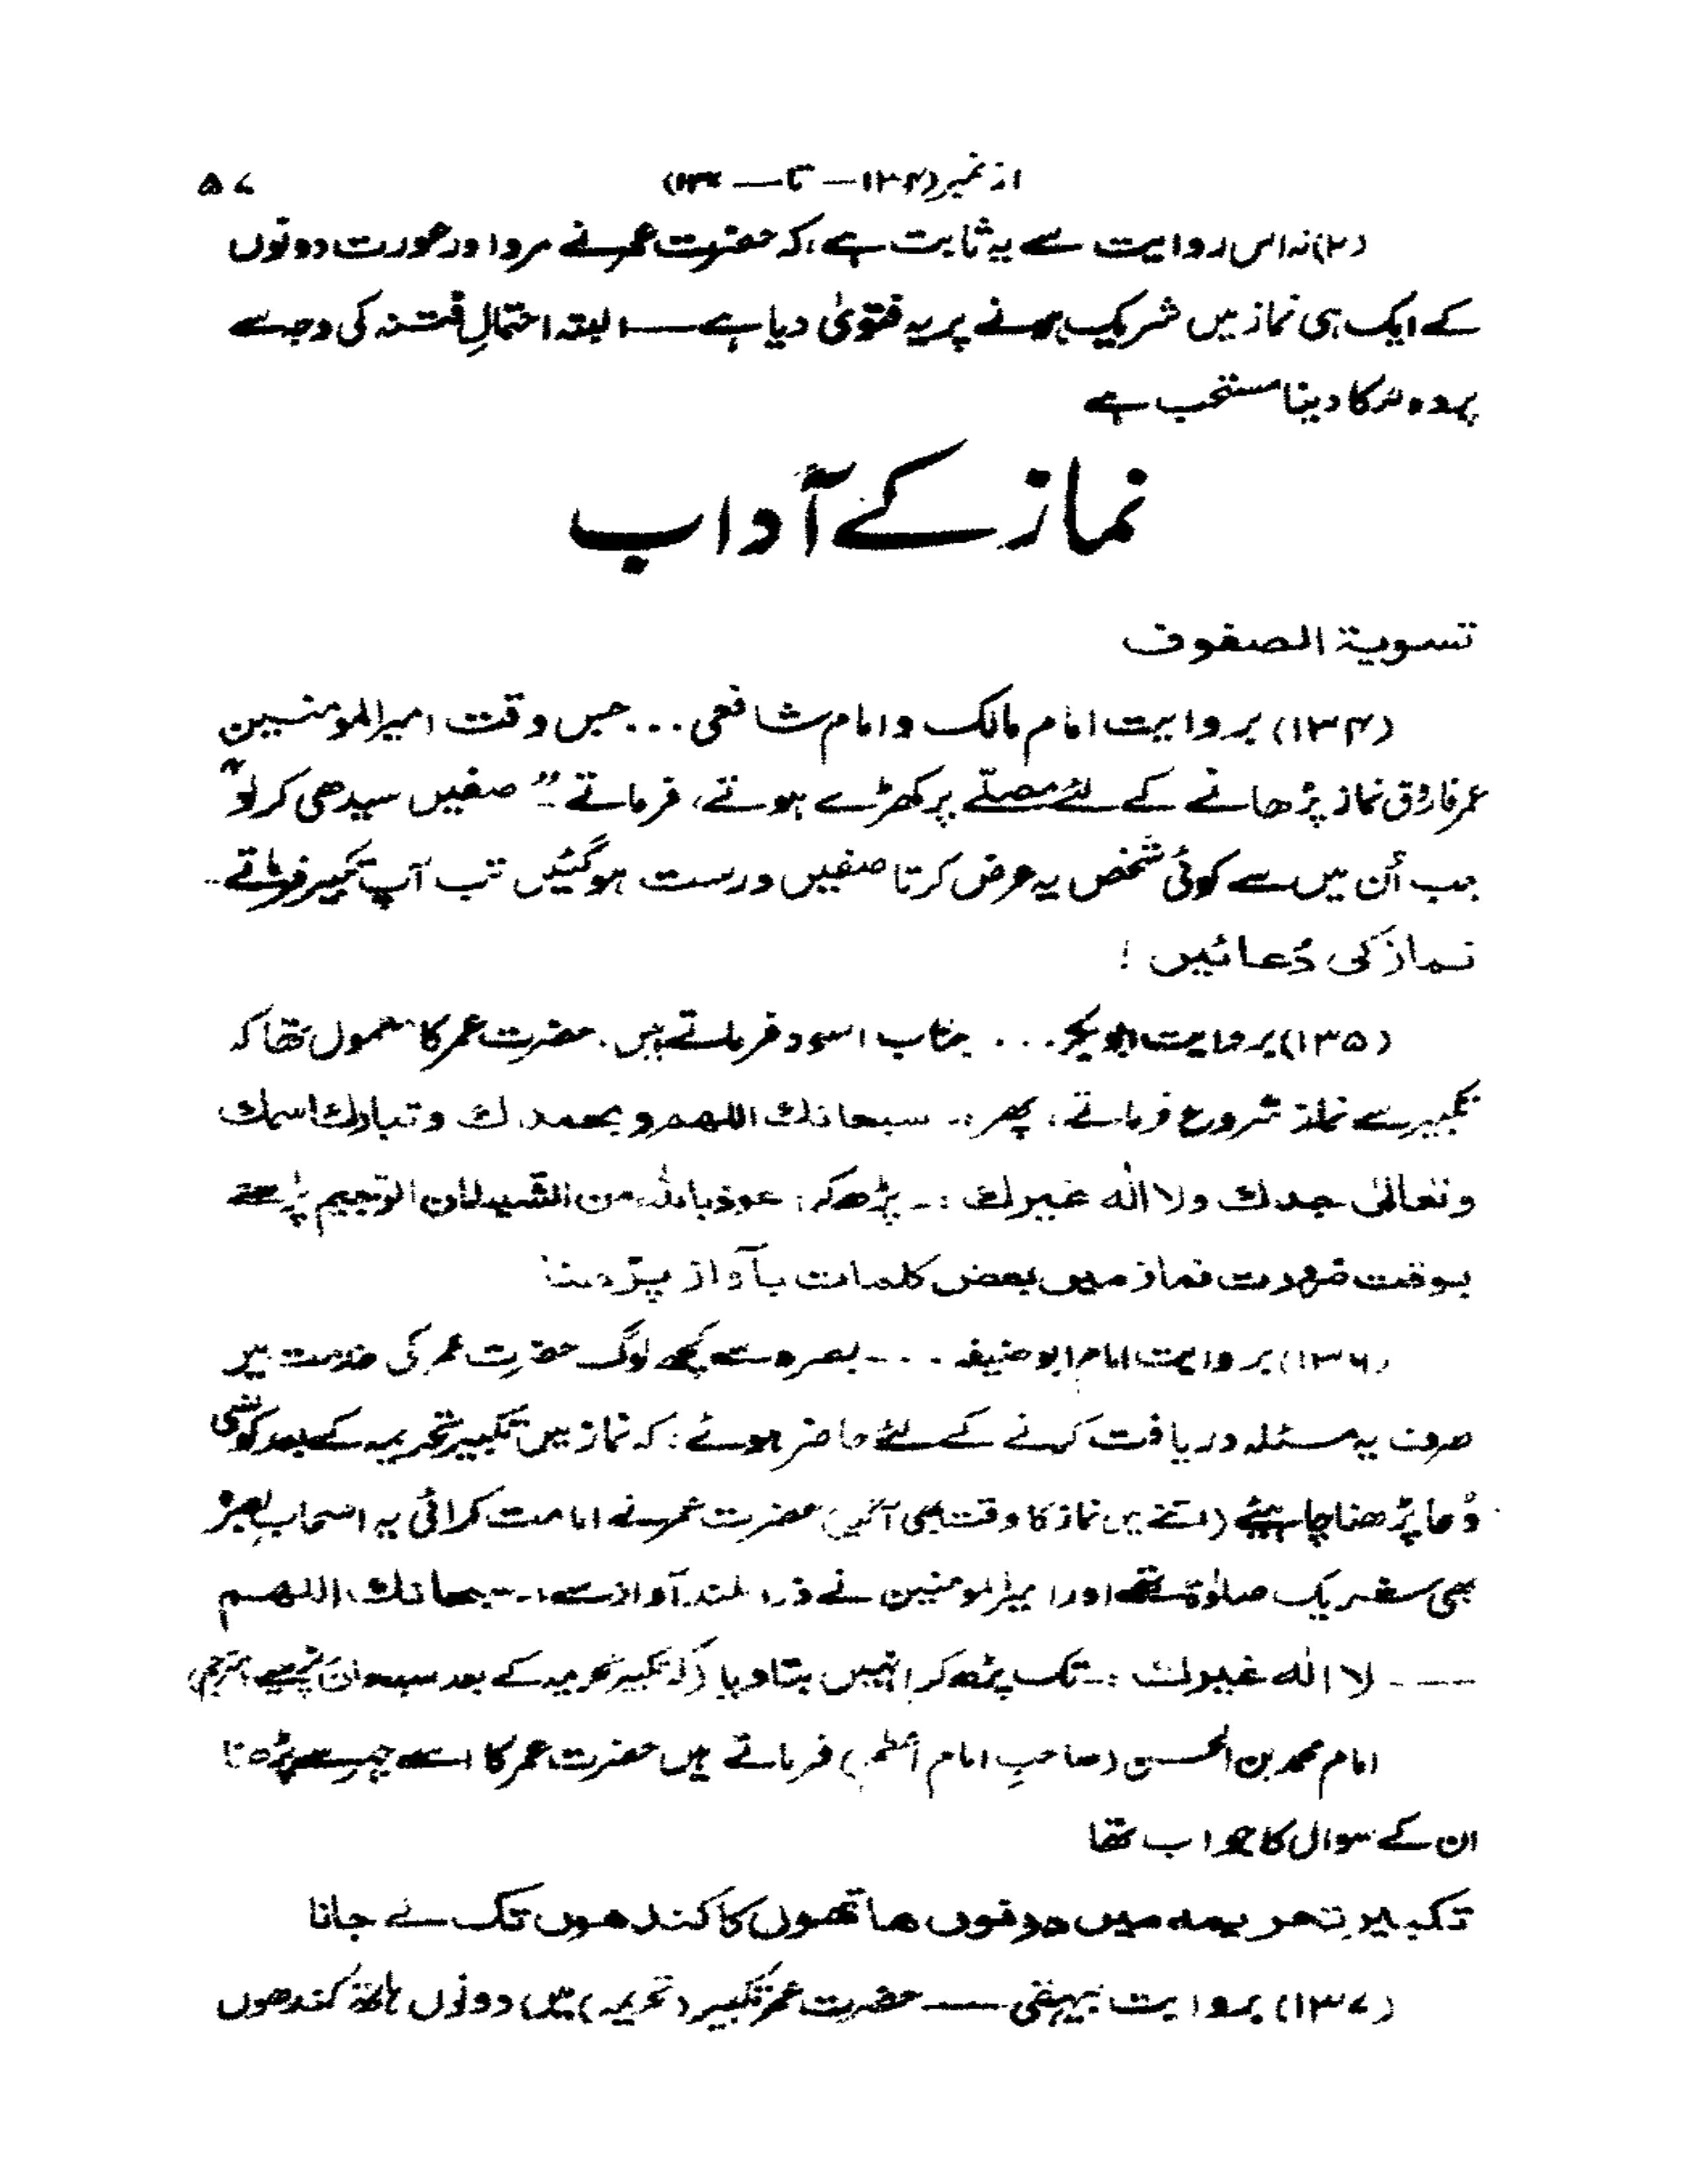 از نمبر (۱۳۴ — تا — ۱۳۷) ۵۷
(۲) نہ اس روایت سے یہ ثابت ہے، کہ حضرت عمر نے مرد اور عورت دونوں
کے ایک ہی نماز میں شریک ہونے پر یہ فتویٰ دیا ہے — البتہ احتمالِ فتنہ کی وجہ سے
پردہ لٹکا دینا مستحب ہے
نماز کے آداب
تسویة الصفوف
(۱۳۴) بروایت امام مالک و امام شافعی ... جس وقت امیرالمومنین
عمر فاروق نماز پڑھانے کے لئے مصلّے پر کھڑے ہوتے، فرماتے :۔ "صفیں سیدھی کر لو"
جب اُن میں سے کوئی شخص یہ عرض کرتا صفیں درست ہوگئیں تب آپ تکبیر فرماتے۔
نماز کی دُعائیں !
(۱۳۵) بروایت ابوبکر ... جناب اسود فرماتے ہیں۔ حضرت عمر کا معمول تھا کہ
تکبیر سے نماز شروع فرماتے، پھر :۔ سبحانك اللهم و بحمدك و تبارك اسمك
وتعالیٰ جدك ولا اله غیرك :۔ پڑھ کر، عوذ بالله من الشیطان الرجیم پڑھتے
بوقت ضرورت نماز میں بعض کلمات بآواز پڑھنا
(۱۳۶) بروایت امام ابوحنیفہ ... بصرہ سے کچھ لوگ حضرت عمر کی خدمت میں
صرف یہ مسئلہ دریافت کرنے کے لئے حاضر ہوئے: کہ نماز میں تکبیر تحریمہ کے بعد کونسی
دُعا پڑھنا چاہیئے (اتنے میں نماز کا وقت بھی آگیا) حضرت عمر نے امامت کرائی یہ اصحابِ بصرہ
بھی شریک صلوٰة تھے اور امیرالمومنین نے ذرا بلند آواز سے :۔ سبحانك اللهم
— — لا اله غیرك :۔ تک پڑھ کر انہیں بتا دیا (کہ تکبیر تحریمہ کے بعد سبحان پڑھیے، مترجم)
امام محمد بن الحسن (صاحبِ امام اعظم) فرماتے ہیں حضرت عمر کا اسے جہر سے پڑھنا
ان کے سوال کا جواب تھا
تکبیرِ تحریمہ میں دونوں ھاتھوں کا کندھوں تک لے جانا
(۱۳۷) بروایت بیہقی — حضرت عمر تکبیر (تحریمہ) میں دونوں ہاتھ کندھوں